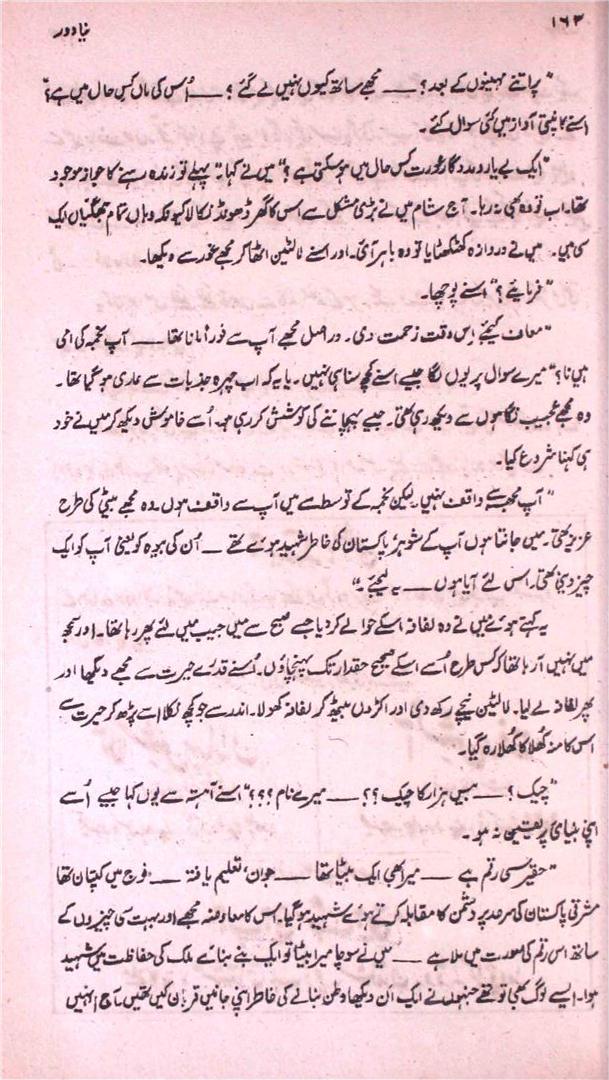 ۱۶۳
نیا دور
"پر اتنے مہینوں کے بعد؟ — مجھے ساتھ کیوں نہیں لے گئے؟ — اُس کی ماں کس حال میں ہے؟"
اسنے کانپتی آواز میں کئی سوال کئے۔
"ایک بے یار و مددگار عورت کس حال میں ہو سکتی ہے؟" میں نے کہا۔ "پہلے تو زندہ رہنے کا جواز موجود
تھا۔ اب تو وہ بھی نہ رہا۔ آج شام میں نے بڑی مشکل سے اس کا گھر ڈھونڈ نکالا کیونکہ وہاں تمام جھگیاں ایک
سی ہیں۔ میں نے دروازہ کھٹکھٹایا تو وہ باہر آئی۔ اور اسنے لالٹین اٹھا کر مجھے غور سے دیکھا۔
"فرمایئے؟" اسنے پوچھا۔
"معاف کیجئے اس وقت زحمت دی۔ دراصل مجھے آپ سے فوراً ملنا تھا — آپ نجمہ کی امی
ہیں نا؟" میرے سوال پر یوں لگا جیسے اسنے کچھ سنا ہی نہیں۔ یا یہ کہ اب چہرہ جذبات سے عاری ہو گیا تھا۔
وہ مجھے عجیب نگاہوں سے دیکھ رہی تھی۔ جیسے پہچاننے کی کوشش کر رہی ہو۔ اُسے خاموش دیکھ کر میں نے خود
ہی کہنا شروع کیا۔
"آپ مجھ سے واقف نہیں، لیکن نجمہ کے توسط سے میں آپ سے واقف ہوں۔ وہ مجھے بیٹی کی طرح
عزیز تھی۔ میں جانتا ہوں آپ کے شوہر پاکستان کی خاطر شہید ہوئے تھے — اُن کی بیوہ کو یعنی آپ کو ایک
چیز دینی تھی، اس لئے آیا ہوں — یہ لیجئے۔"
یہ کہتے ہوئے میں نے وہ لفافہ اسکے حوالے کر دیا جسے صبح سے میں جیب میں لئے پھر رہا تھا۔ اور سمجھ
میں نہیں آ رہا تھا کہ کس طرح اُسے اسکے صحیح حقدار تک پہنچاؤں۔ اُسنے قدرے حیرت سے مجھے دیکھا اور
پھر لفافہ لے لیا۔ لالٹین نیچے رکھ دی اور اکڑوں بیٹھ کر لفافہ کھولا۔ اندر سے جو کچھ نکلا اسے پڑھ کر حیرت سے
اس کا منہ کُھلا کا کُھلا رہ گیا۔
"چیک؟ — بیس ہزار کا چیک؟؟ — میرے نام؟؟؟" اسنے آہستہ سے یوں کہا جیسے اُسے
اپنی بینائی پر یقین نہ ہو۔
"حقیر سی رقم ہے — میرا بھی ایک بیٹا تھا — جوان، تعلیم یافتہ — فوج میں کپتان تھا
مشرقی پاکستان کی سرحد پر دشمن کا مقابلہ کرتے ہوئے شہید ہو گیا۔ اس کا معاوضہ مجھے اور بہت سی چیزوں کے
ساتھ اس رقم کی صورت میں ملا ہے — میں نے سوچا میرا بیٹا تو ایک بنے بنائے ملک کی حفاظت میں شہید
ہوا۔ ایسے لوگ بھی تو تھے جنہوں نے ایک ان دیکھا وطن بنانے کی خاطر اپنی جانیں قربان کیں تھیں۔ آج انہیں